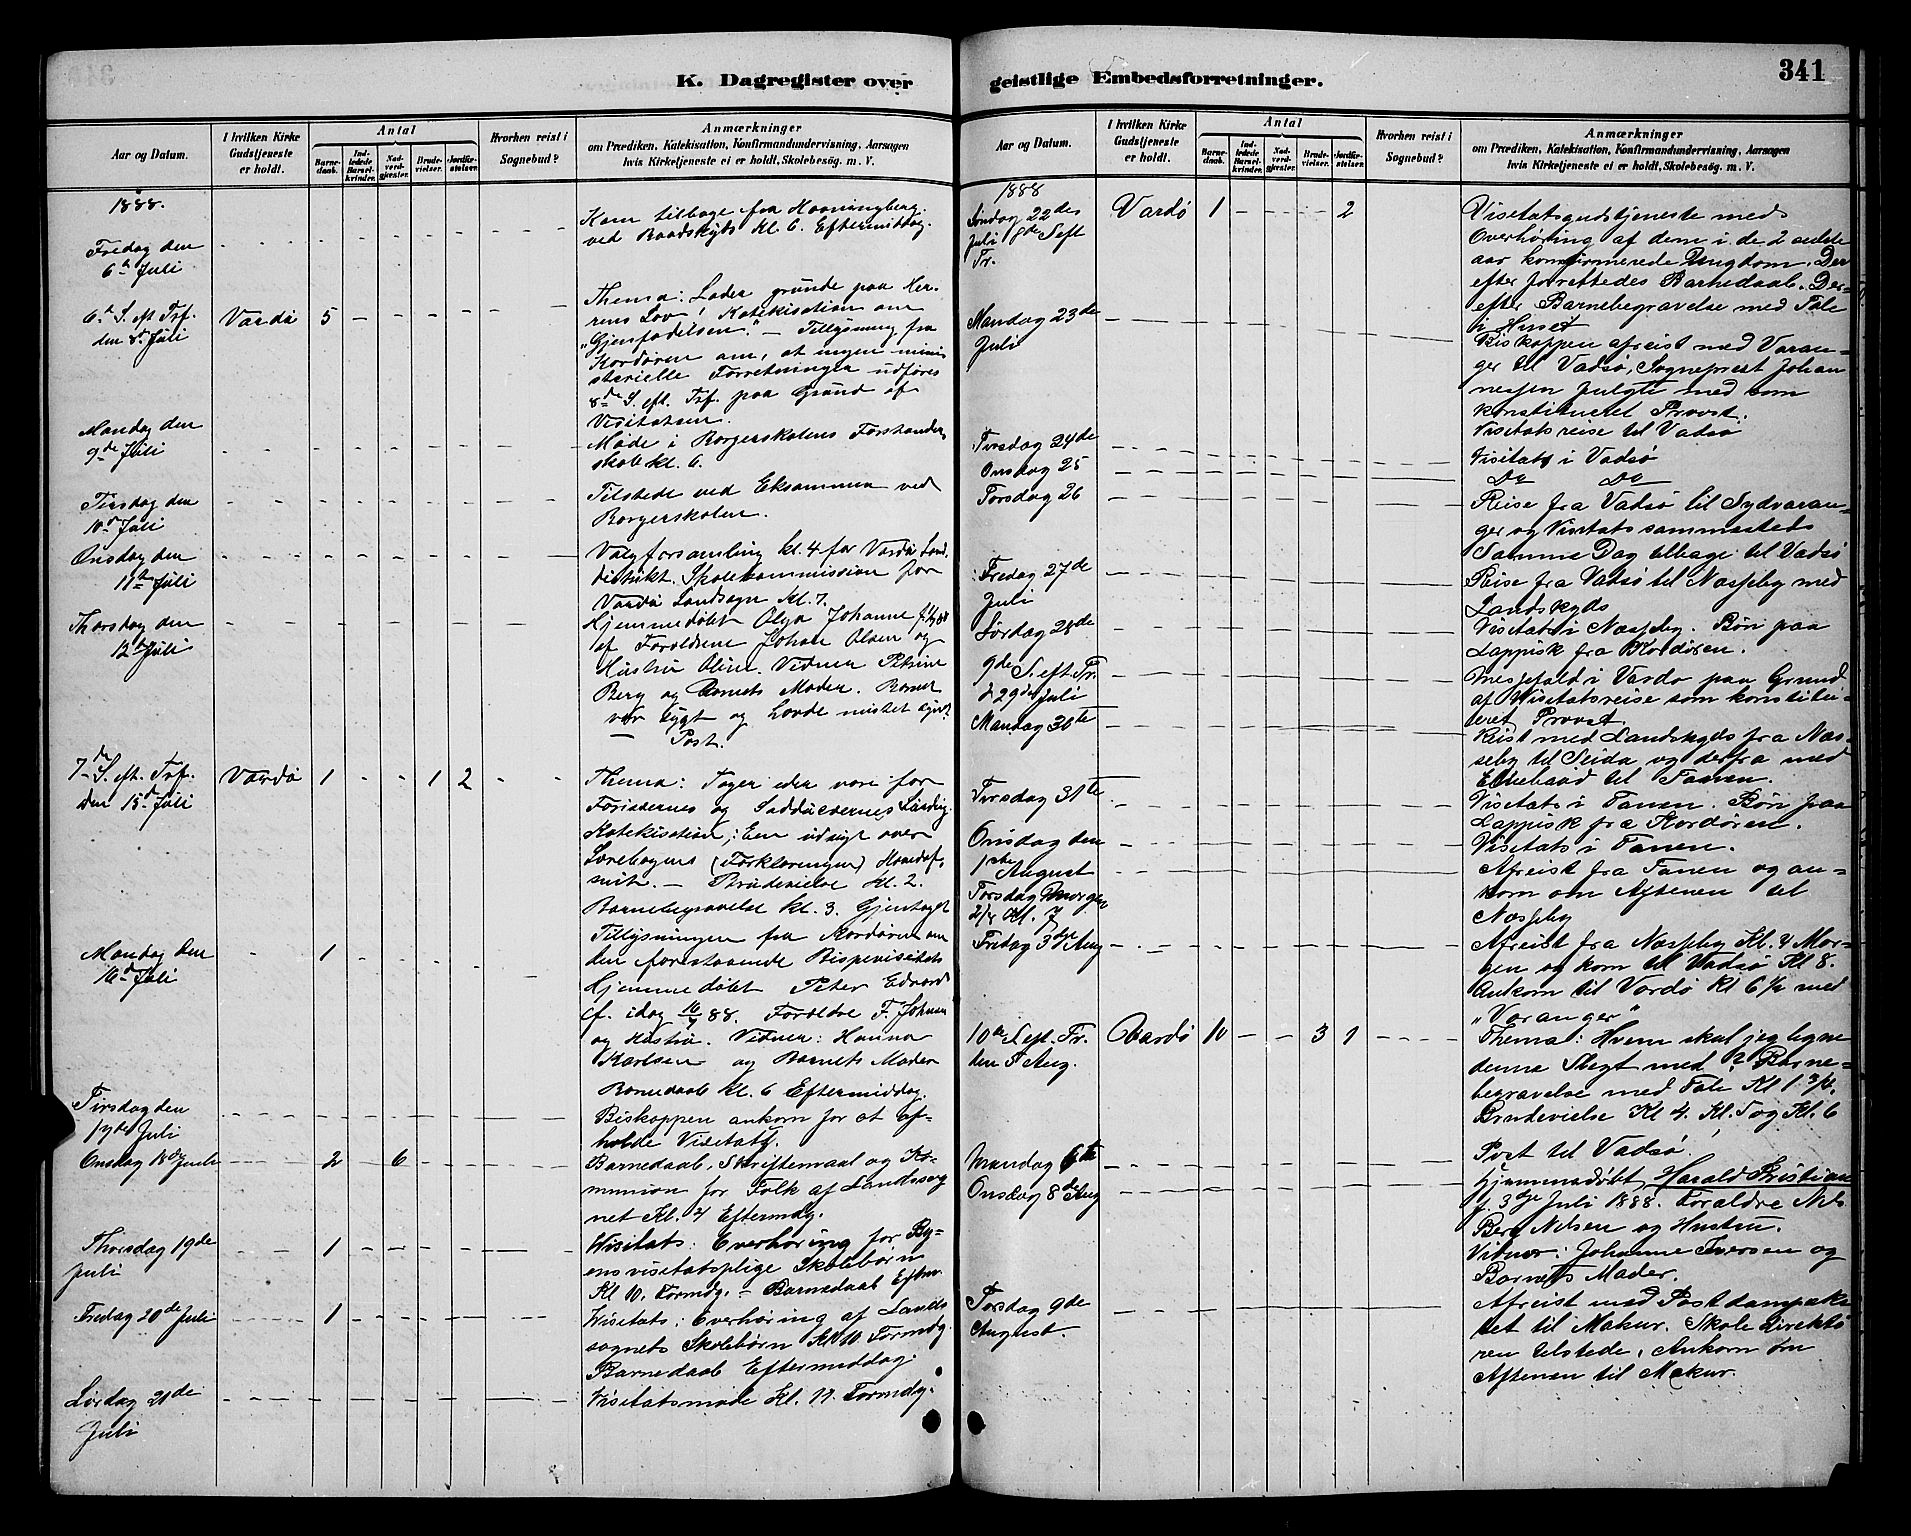 K. Dagregister over
Aar og Datum.
I hvilken Kirke Gudstjeneste er holdt.
Antal
Barnedaab.
Indledede Barselkvinder.
Nadverdgjester.
Brudevielser.
Jordfæstelser.
Hvorhen reist i Sognebud?
Anmærkninger
om Prædiken, Katekisation, Konfirmandundervisning, Aarsagen
hvis Kirketjeneste ei er holdt, Skolebesög. m. V.
1888.
Fredag den
6te Juli
Kom tilbage fra Havningberg
ved Baadskyds Kl. 6. Eftermiddag.
6te S. eft. Tref.
den 8de Juli
Vardö 5
Thema: Lader grunde paa Her-
rens Lov! Katekisation om
"Gjenfødelsen." – Tillysning fra
Kordøren om, at ingen mini-
sterielle Forretninger udføres
8de S. eft. Tref. paa Grund af
Visitatsen.
Mandag den
9de Juli
Møde i Borgerskolens Forstander-
skab kl. 6.
Tirsdag den
10de Juli
Tilstede ved Eksamen ved
Borgerskolen.
Onsdag den
11te Juli
Valgforsamling kl. 4 for Vardö Land-
distrikt. Skolekommission for
Vardö Landsogn kl. 7.
Thorsdag den
12te Juli
Hjemmedøbt Olga Johanne
af Forældrene Johan Olsen og
Hustru Oline. Vidner Petrine
Berg og Barnets Moder. Barnet
var sygt og
Post.
7de S. eft. Tref.
den 15de Juli
Vardö 1 1 2
Thema: Tager eder vare for
Farisæernes og Sadducæernes Surdeig.
Katekisation: En udsigt over
Lærebogens (Forklaringen) Hovedaf-
snit. – Brudevielse kl. 2.
Barnebegravelse kl. 3. Gjentaget
Tillysningen fra Kordøren om
den forestaaende Bispevisitats
Mandag den
16de Juli
1
Hjemmedøbt Peter Edvard
f. idag 16/7 88. Forældre F. Johnsen
og Hustru. Vidner: Hanna
Karlsen og Barnets Moder
Barnedaab kl. 6 Eftermiddag.
Tirsdag den
17de Juli
Biskoppen ankom for at af-
holde Visitats.
Onsdag 18de Juli
2 6
Barnedaab, Skriftemaal og Ko-
munion for Folk af Landsog-
net Kl. 4 Eftermdg.
Thorsdag 19de
Juli
1
Visitats: Overhøring for By-
ens visitatspligtige Skolebørn
Kl 10. Formdg. – Barnedaab Eftm.
Fredag 20de Juli
1
Visitats: Overhøring af Lands-
sognets Skolebørn Kl 10 Formdg.
Barnedaab Eftermiddag.
Lördag 21de
Juli
Visitatsmøde Kl. 11 Formdg.
geistlige Embedsforretninger.
341
Aar og Datum.
I hvilken Kirke Gudstjeneste er holdt.
Antal
Barnedaab.
Indledede Barselkvinder.
Nadverdgjester.
Brudevielser.
Jordfæstelser.
Hvorhen reist i Sognebud?
Anmærkninger
om Prædiken, Katekisation, Konfirmandundervisning, Aarsagen
hvis Kirketjeneste ei er holdt, Skolebesög. m. V.
1888
Söndag 22des
Juli 8de S eft
Tr.
Vardö 1 2
Visitatsgudstjeneste med
Overhøring af dem i de 2 sidste
aar konfirmerede Ungdom. Der
efter forrettedes Barnedaab. Der-
efter Barnebegravelse med Tale
i Huset
Mandag 23de
Juli
Biskoppen afreist med Varan-
ger til Vadsø, Sogneprest Johan
nessen fulgte med som
konstitueret Provst.
Tirsdag 24de
Visitatsreise til Vadsø
Onsdag 25
Visitats i Vadsø
Torsdag 26
Do Do
Reise fra Vadsø til Sydvaran-
ger og Visitats sammesteds
Samme Dag tilbage til Vadsø
Fredag 27de
Juli
Reise fra Vadsø til Næsseby med
Landskyds
Lördag 28de
Visitats i Næsseby. Bøn paa
Lappisk fra Kordøren.
9de S. eft. Tr.
d 29de Juli
Messefald i Vardø paa Grund
af Visitatsreise som konstitu-
eret Provst.
Mandag 30te
Reist med Landskyds fra Næs-
seby til Seida og derfra med
Elvebaad til Tanen.
Tirsdag 31te
Visitats i Tanen. Bøn paa
Lappisk fra Kordøren.
Onsdag den
1ste August
Visitats i Tanen.
Torsdag Morgen
2/8 Kl. 7
Afreist fra Tanen og an-
kom om Aftenen til
Næsseby
Fredag 3die Aug
Afreist fra Næsseby Kl. 4 Mor-
gen og kom til Vadsø Kl 8.
Ankom til Vardø Kl 6 1/2 med
"Varanger"
10de S. eft. Tr.
den 5 Aug.
Vardö 10 3 1
Thema: Hvem skal jeg ligne
denne Slegt med? Barne-
begravelse med Tale Kl 1 3/4.
Brudevielse Kl 4. Kl. 5 og Kl. 6
Mandag 6te
Post til Vadsø.
Onsdag 8de Aug
Hjemmedøbt, Harald Kristian
f. 3die Juli 1888. Foraldre Nils
Berg Nilsen og Hustru.
Vidner: Johanne Iversen og
Barnets Moder.
Torsdag 9de
August.
Afreist med Postdampski-
bet til Makur. Skoledirektö
ren tilstede, Ankom om
Aftenen til Makur.